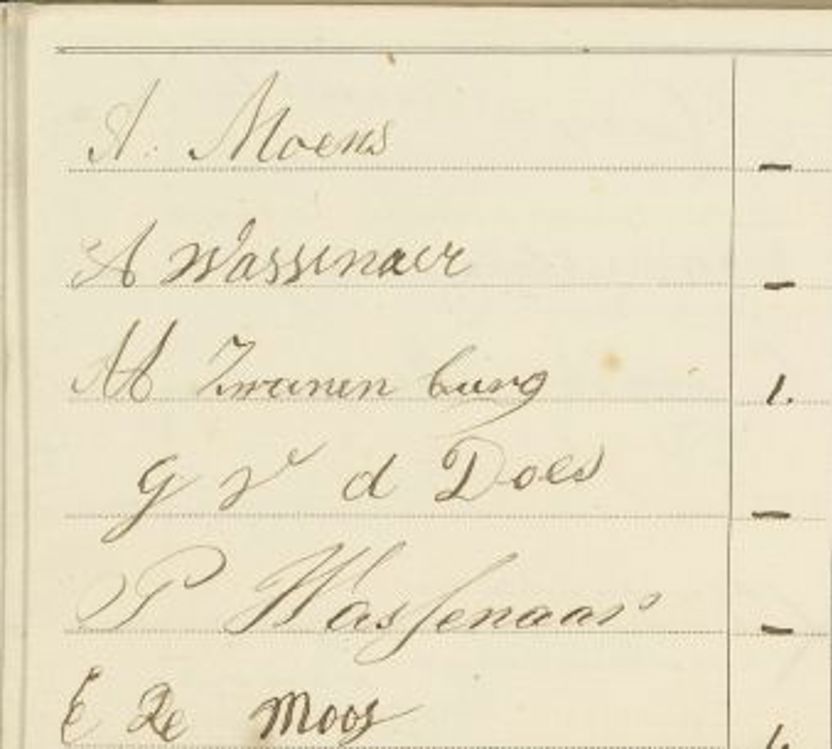 A. Moens –
A Wassenaer –
M Zwanenburg 1.
G v d Does –
P Wassenaar –
E De Moor 1.